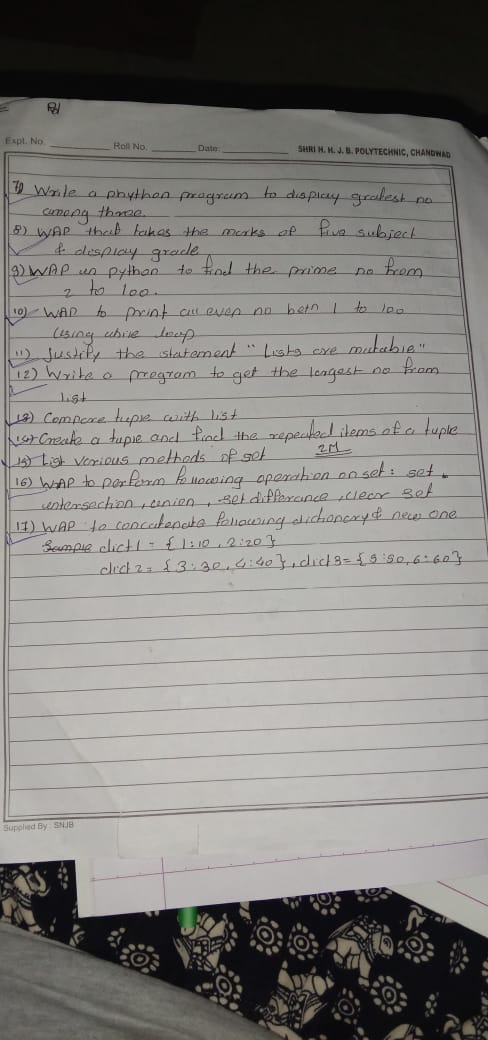 Expt. No. Roll No. Date: SHRI H. H. J. B. POLYTECHNIC, CHANDWAD
7) Write a phython program to display gratest no
among three.
8) WAP that takes the marks of five subject
& display grade
9) WAP in python to find the prime no from
2 to 100.
10) WAP to print all even no betn 1 to 100
Using while loop
11) Justify the statement "Lists are mutable"
12) Write a program to get the largest no from
list
13) Compare tuple with list
14) Create a tuple and find the repeated items of a tuple
15) List various methods of set 2M
16) WAP to perform following operation on set: set
intersection, union, set difference, clear set
17) WAP to concatenate following dictionary & new one
Sample dict1 = {1:10, 2:20}
dict2 = {3:30, 4:40}, dict3 = {5:50, 6:60}
Supplied By : SNJB